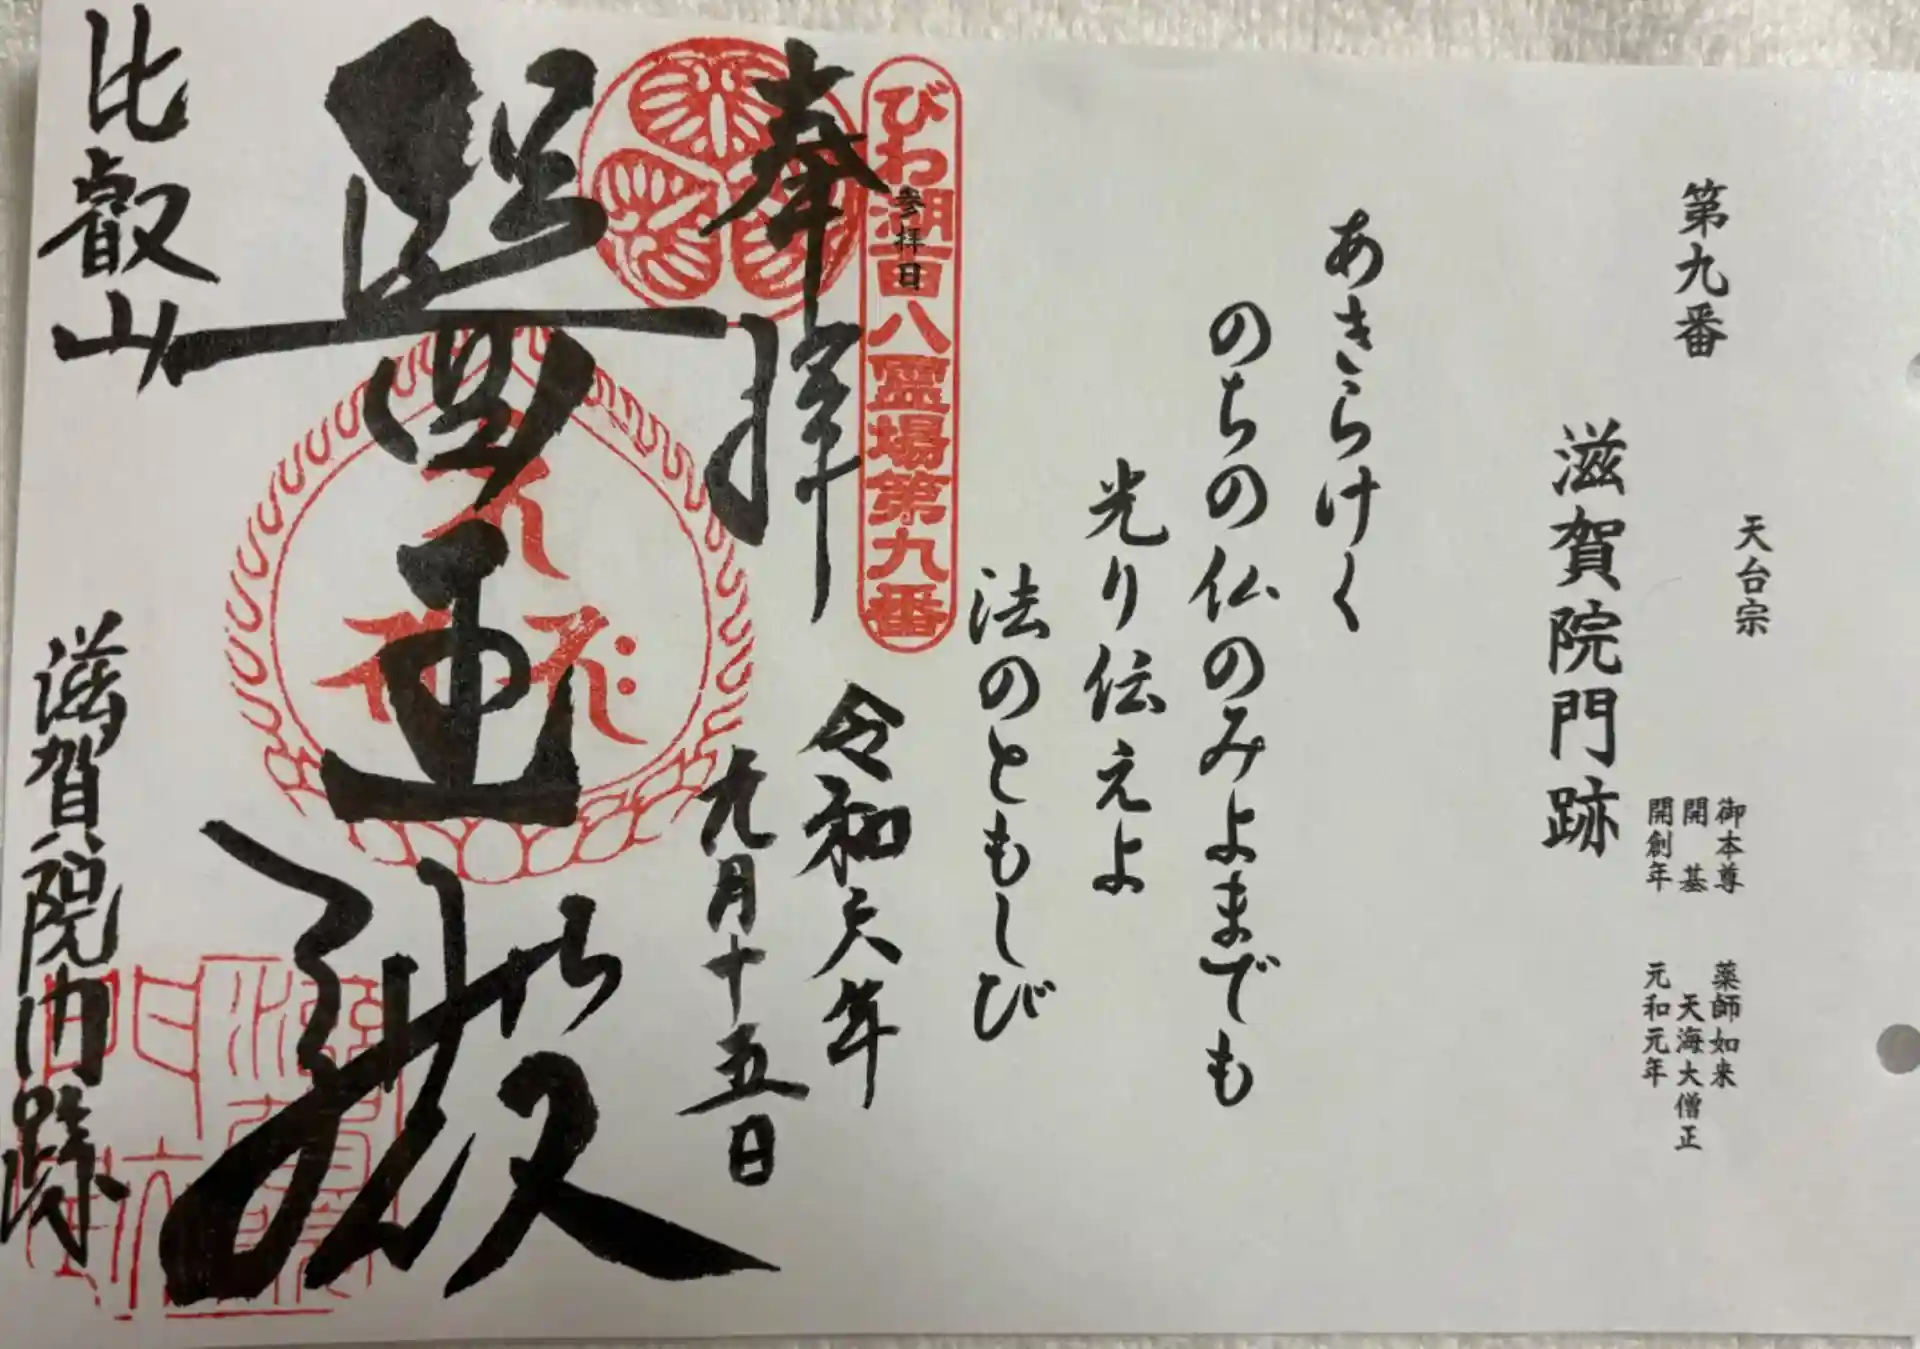 天台宗
第九番
御本尊 薬師如来
開基 天海大僧正
開創年 元和元年
滋賀院門跡
あきらけく
のちの仏のみよまでも
光り伝えよ
法のともしび
びわ湖百八霊場第九番
参拝日
奉拝
令和六年
九月十五日
比叡山
滋賀院門跡